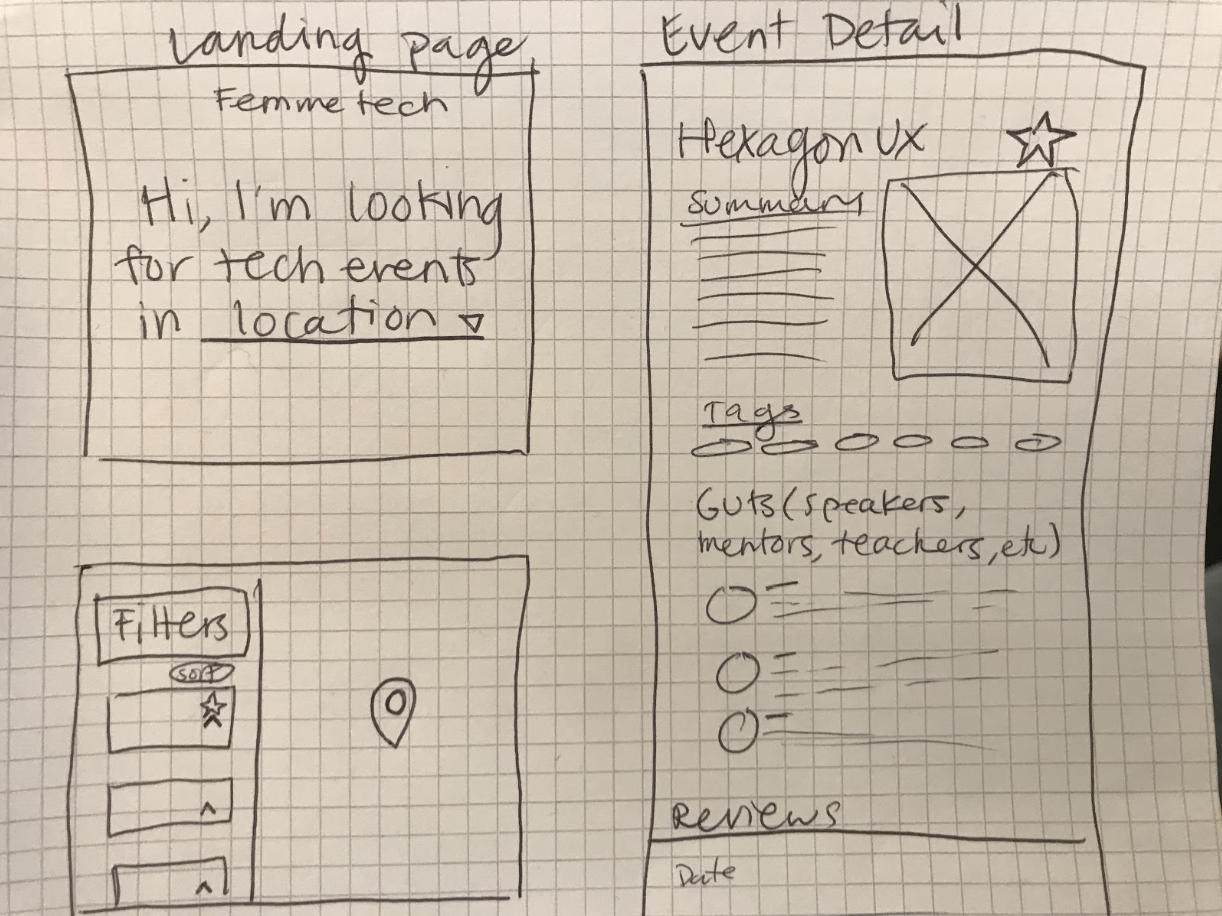 Landing page
Femme tech
Hi, I'm looking
for tech events
in location
Filters
sort
Event Detail
Hexagon UX
Summary
Tags
GUTS (speakers,
mentors, teachers, etc)
Reviews
Date